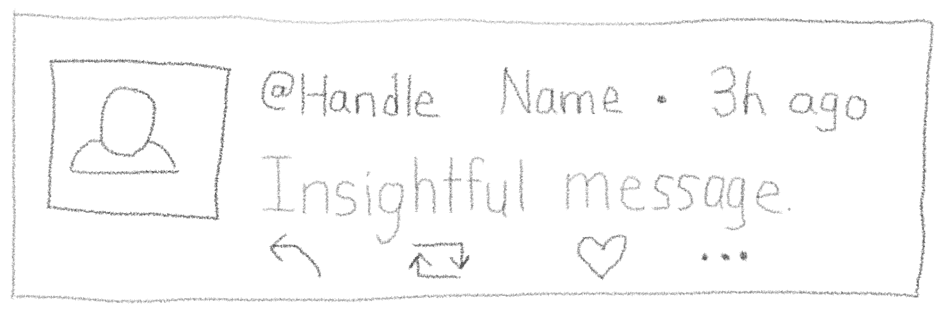 @Handle Name · 3h ago
Insightful message.